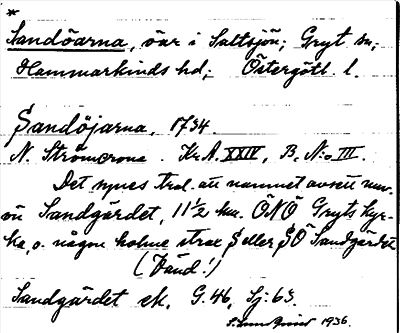 *
Sandöarna, öar i Saltsjön; Gryt sn;
Hammarkinds hd; Östergötl. l.
Sandöjarna, 1734.
N. Strömcrona. Kr.A. XXIV, B. N:o III.
Det synes trol. att namnet avsett nuv.
ön Sandgärdet, 11 1/2 km. ÖNÖ Gryts kyr-
ka, o. någon holme strax S eller SÖ Sandgärdet
(Känd!)
Sandgärdet ek. G. 46, Sj. 63.
1936.